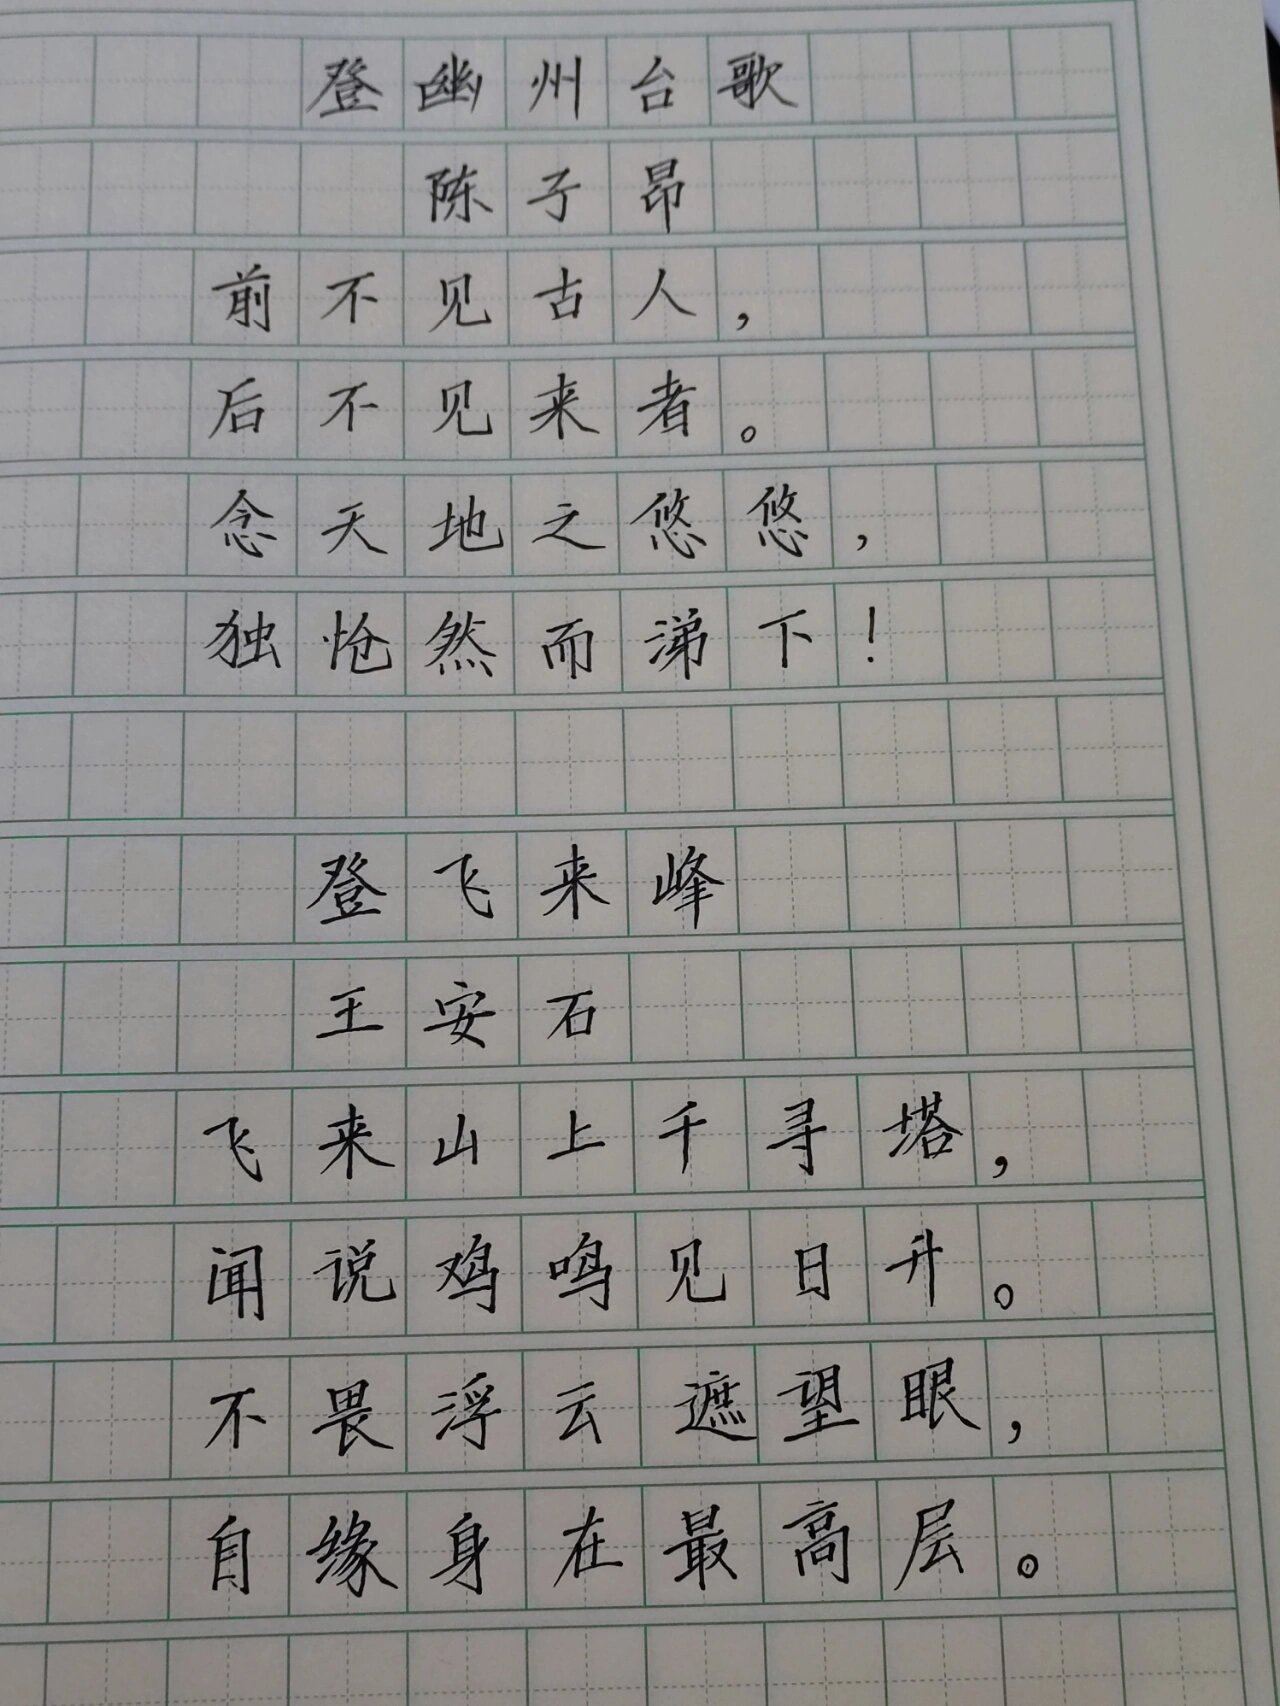 登幽州台歌
陈子昂
前不见古人，
后不见来者。
念天地之悠悠，
独怆然而涕下！
登飞来峰
王安石
飞来山上千寻塔，
闻说鸡鸣见日升。
不畏浮云遮望眼，
自缘身在最高层。